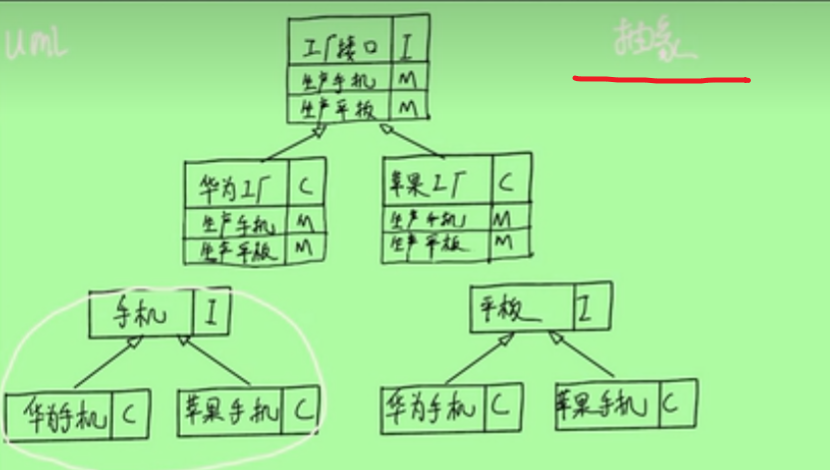 UML
抽象
工厂接口 I
生产手机 M
生产平板 M
华为工厂 C
生产手机 M
生产平板 M
苹果工厂 C
生产手机 M
生产平板 M
手机 I
平板 I
华为手机 C
苹果手机 C
华为手机 C
苹果手机 C